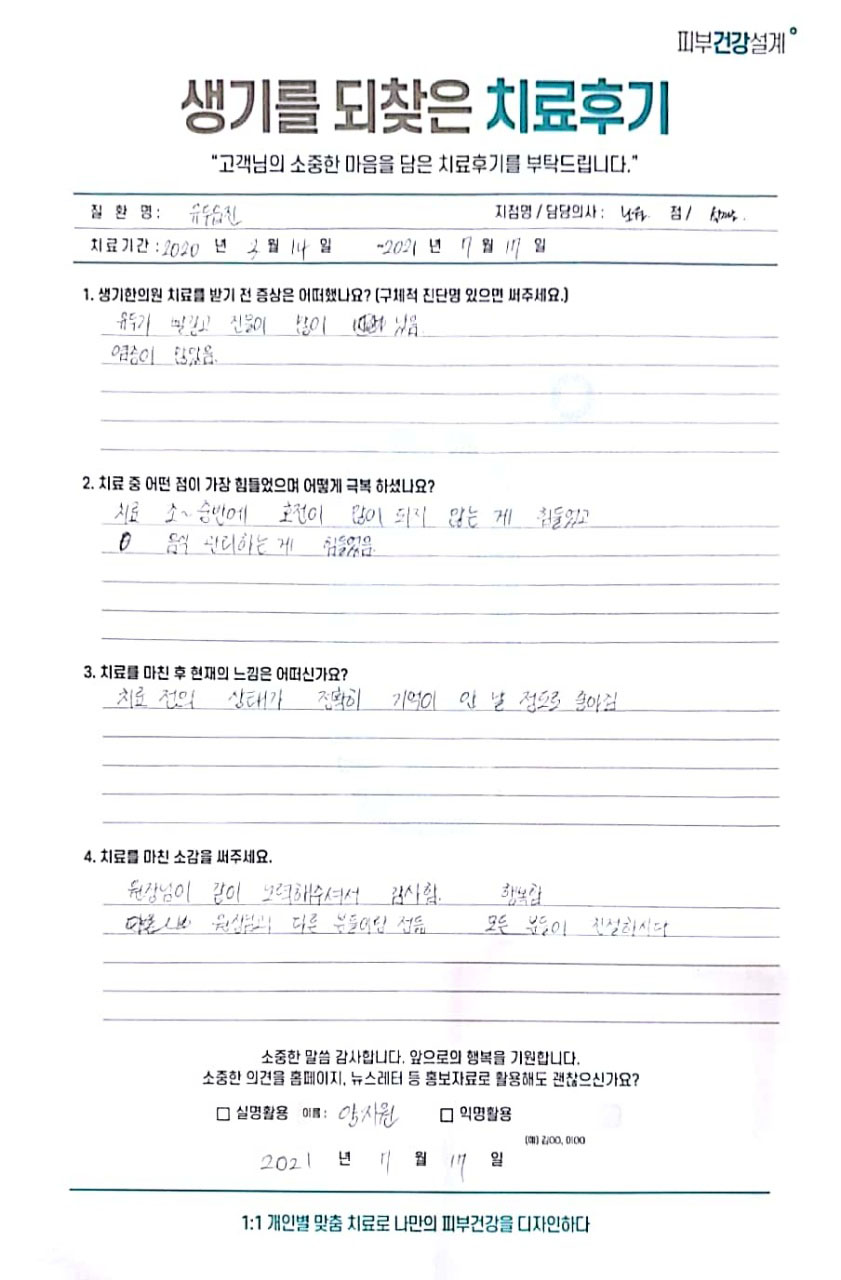 피부건강설계
생기를 되찾은 치료후기
"고객님의 소중한 마음을 담은 치료후기를 부탁드립니다."
질 환 명: 유두습진 지점명/담당의사: 점/
치료기간: 2020 년 3 월 14 일 ~2021 년 7 월 17 일
1. 생기한의원 치료를 받기 전 증상은 어떠했나요? (구체적 진단명 있으면 써주세요.)
유두가 빨갛고 진물이 많이 났음.
염증이 많았음.
2. 치료 중 어떤 점이 가장 힘들었으며 어떻게 극복 하셨나요?
치료 초~중반에 호전이 많이 되지 않는 게 힘들었고
음식 관리하는 게 힘들었음
3. 치료를 마친 후 현재의 느낌은 어떠신가요?
치료 전의 상태가 정확히 기억이 안 날 정도로 좋아짐
4. 치료를 마친 소감을 써주세요.
원장님이 같이 노력해주셔서 감사함. 행복함
다른 모든 분들이 친절하시다
소중한 말씀 감사합니다. 앞으로의 행복을 기원합니다.
소중한 의견을 홈페이지, 뉴스레터 등 홍보자료로 활용해도 괜찮으신가요?
실명활용 이름: 익명활용
(예) 김00, 이00
2021 년 7 월 17 일
1:1 개인별 맞춤 치료로 나만의 피부건강을 디자인하다